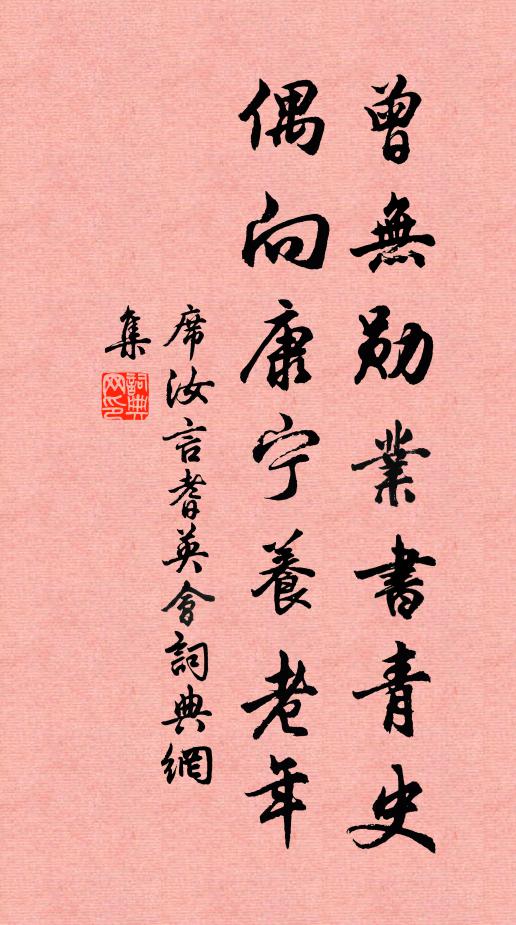 曾無勛業書青史
偶向康宁養老年
席汝言耆英會詞典網
集
詞典
网印